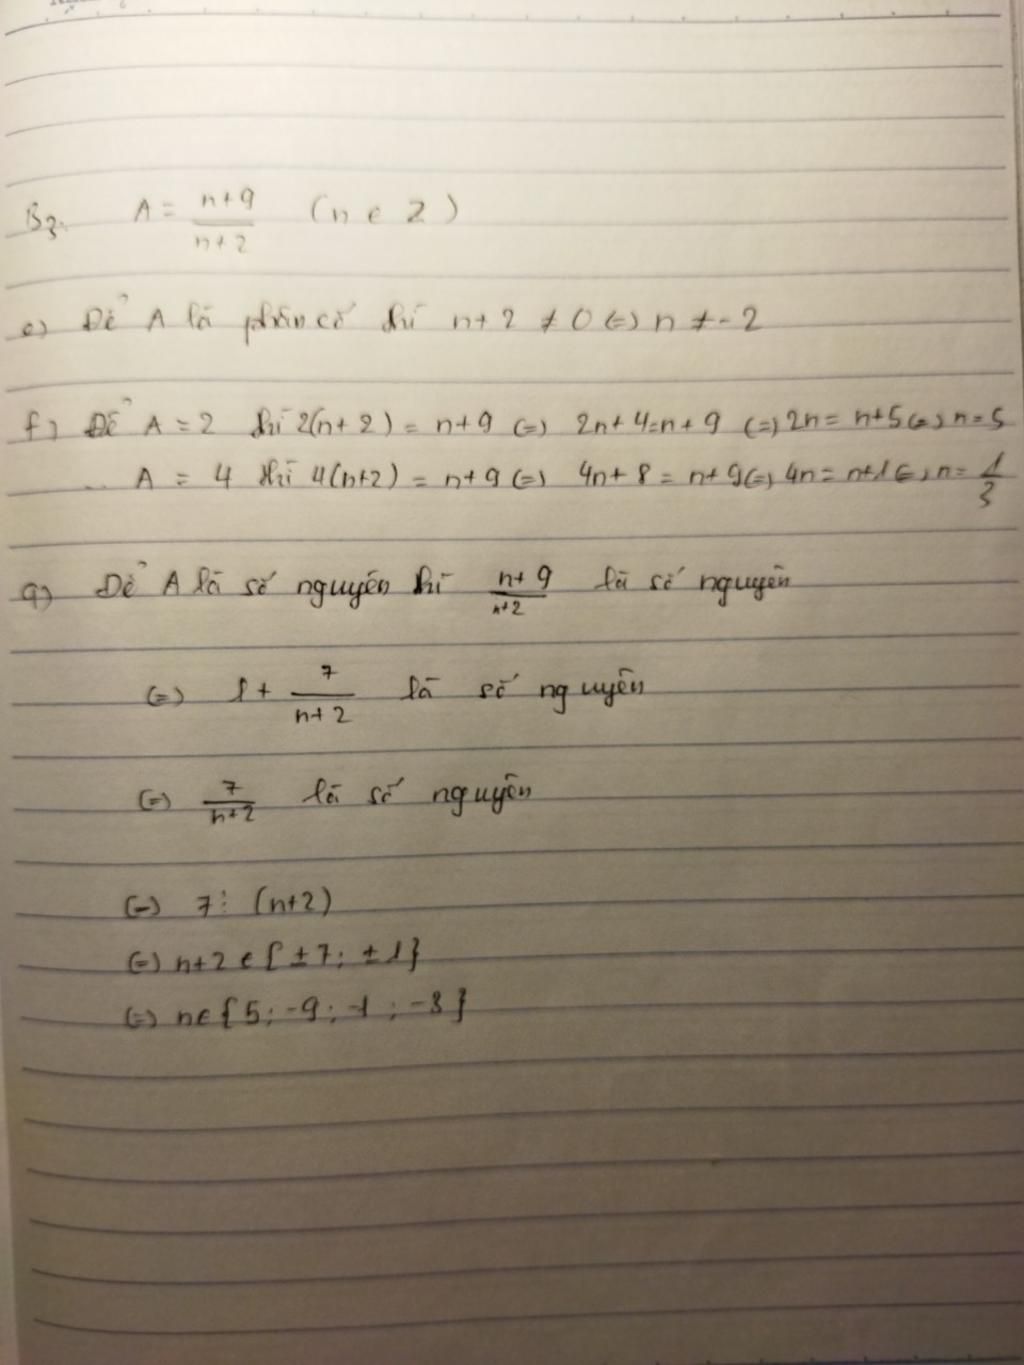 B3. A = n+9/n+2 (n ∈ Z)
e) Để A là phân số thì n+2 ≠ 0 (=) n ≠ -2
f) Để A = 2 thì 2(n+2) = n+9 (=) 2n+4=n+9 (=) 2n = n+5 (=) n=5
A = 4 thì 4(n+2) = n+9 (=) 4n+8 = n+9 (=) 4n = n+1 (=) n = 1/3
g) Để A là số nguyên thì n+9/n+2 là số nguyên
(=) 1 + 7/n+2 là số nguyên
(=) 7/n+2 là số nguyên
(=) 7 ⋮ (n+2)
(=) n+2 ∈ {±7; ±1}
(=) n ∈ {5; -9; -1; -3}